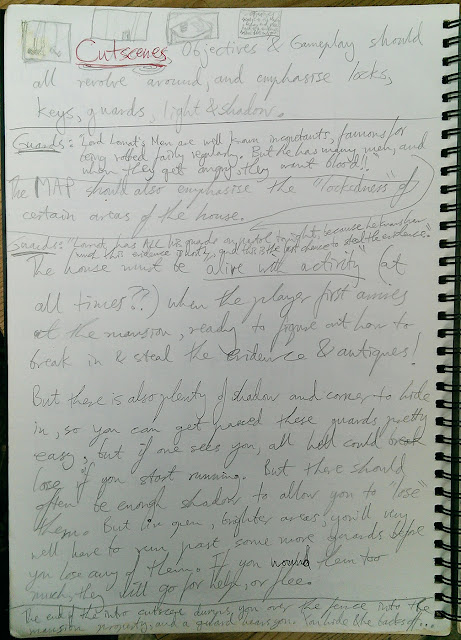 Cutscenes, Objectives & Gameplay should
all revolve around, and emphasise locks,
keys, guards, light & shadow.
Guards: Lord Lamat's Men are well known incompetants, famous for
being robbed fairly regularly. But He has many men, and
when they get angry, they want blood!!
The MAP should also emphasise the "lockedness" of
certain areas of the house.
Guards: "Lamat has ALL his guards on patrol tonight, because he
and this is the last chance to steal the evidence."
The house must be alive with activity (at
all times??) when the player first arrives
at the mansion, ready to figure out how to
break in & steal the evidence & antiques!
But there is also plenty of shadow and corner to hide
in, so you can get passed these guards pretty
easy, but if one sees you, all hell could break
lose if you start running. But there should
often be enough shadow to allow you to "lose"
them. But in open, brighter areas, you'll very
well have to run past some more guards before
you lose any of them. If you wound them too
much, they will go for help, or flee.
The end of the intro cutscene dumps you over the fence into the
mansion property, and a guard hears you. You hide & he backs off...